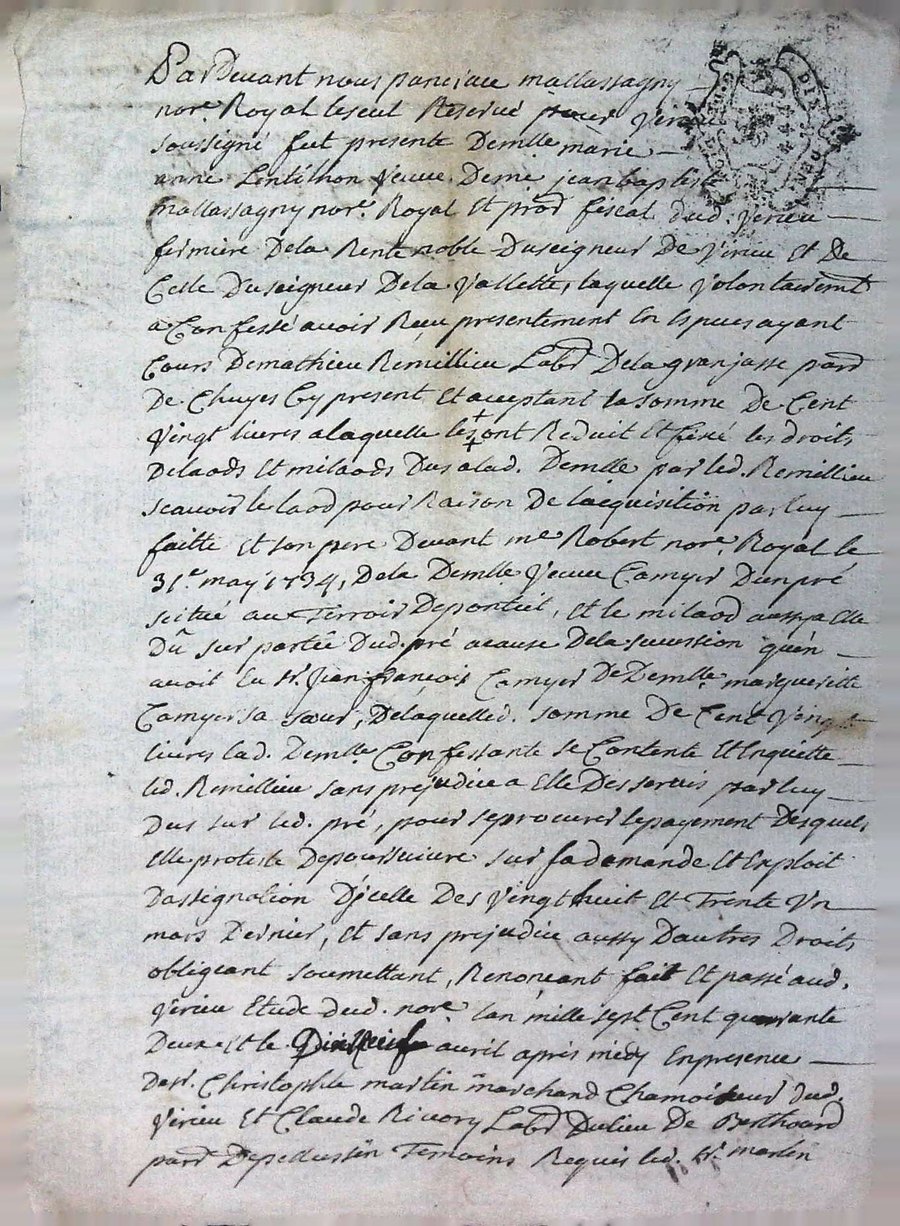 Pardevant nous pancrace mallassagny
nore. Royal le seul Reservé pour Verieu
soussigné fut presente Demlle marie
anne Lentilhon veuve De me jean baptiste
mallassagny nore. Royal Et prod fiscal dud. Verieu
fermiere De la Rente noble Du seigneur De Verieu Et De
Celle Du seigneur De la Vallette, laquelle volontairemt
a Confessé avoir Reçu presentement En Especes ayant
Cours De mathieu Remillieu Labr De la granjasse parr
De Chuyes Cy present Et aceptant la somme De Cent
vingt livres a laquelle ils ont Reduit Et fixé les droits
De laods Et milaods Dus a lad. Demlle par led. Remillieu
scavoir le laod pour Raison De lacquisition par luy
faitte Et son pere Devant me Robert nore. Royal le
31e. may 1734, De la Demlle veuve Camyer Dun pré
scitué au Terroir De ponteil, Et le milaod aussy a Elle
Dû sur partie Dud. pré a cause De la sucession quen
avoit Eu sr. Jean françois Camyer De Demlle. margueritte
Camyer sa sœur, De laquelle d. somme De Cent vingt
livres lad. Demlle Confessante se Contente Et En quitte
led. Remillieu sans prejudice a Elle Des servis par luy
Dus sur led. pré, pour se procurer le payement Desquels
Elle proteste De poursuivre sur sa demande Et Exploit
Dassignation Dicelle Des vingt huit Et Trente Un
mars Dernier, Et sans prejudice aussy Dautres Droits
obligeant soumettant, Renonçant fait Et passé aud.
Verieu Etude dud. nore. lan mille sept Cent quarante
Deux Et le Dixneuf avril après midy En presence
De sr. Christophle martin marchand Chamoiseur dud.
Verieu Et Claude Rivory Labr Du lieu De Berthoard
parr De pellussin Temoins Requis led. sr. martin